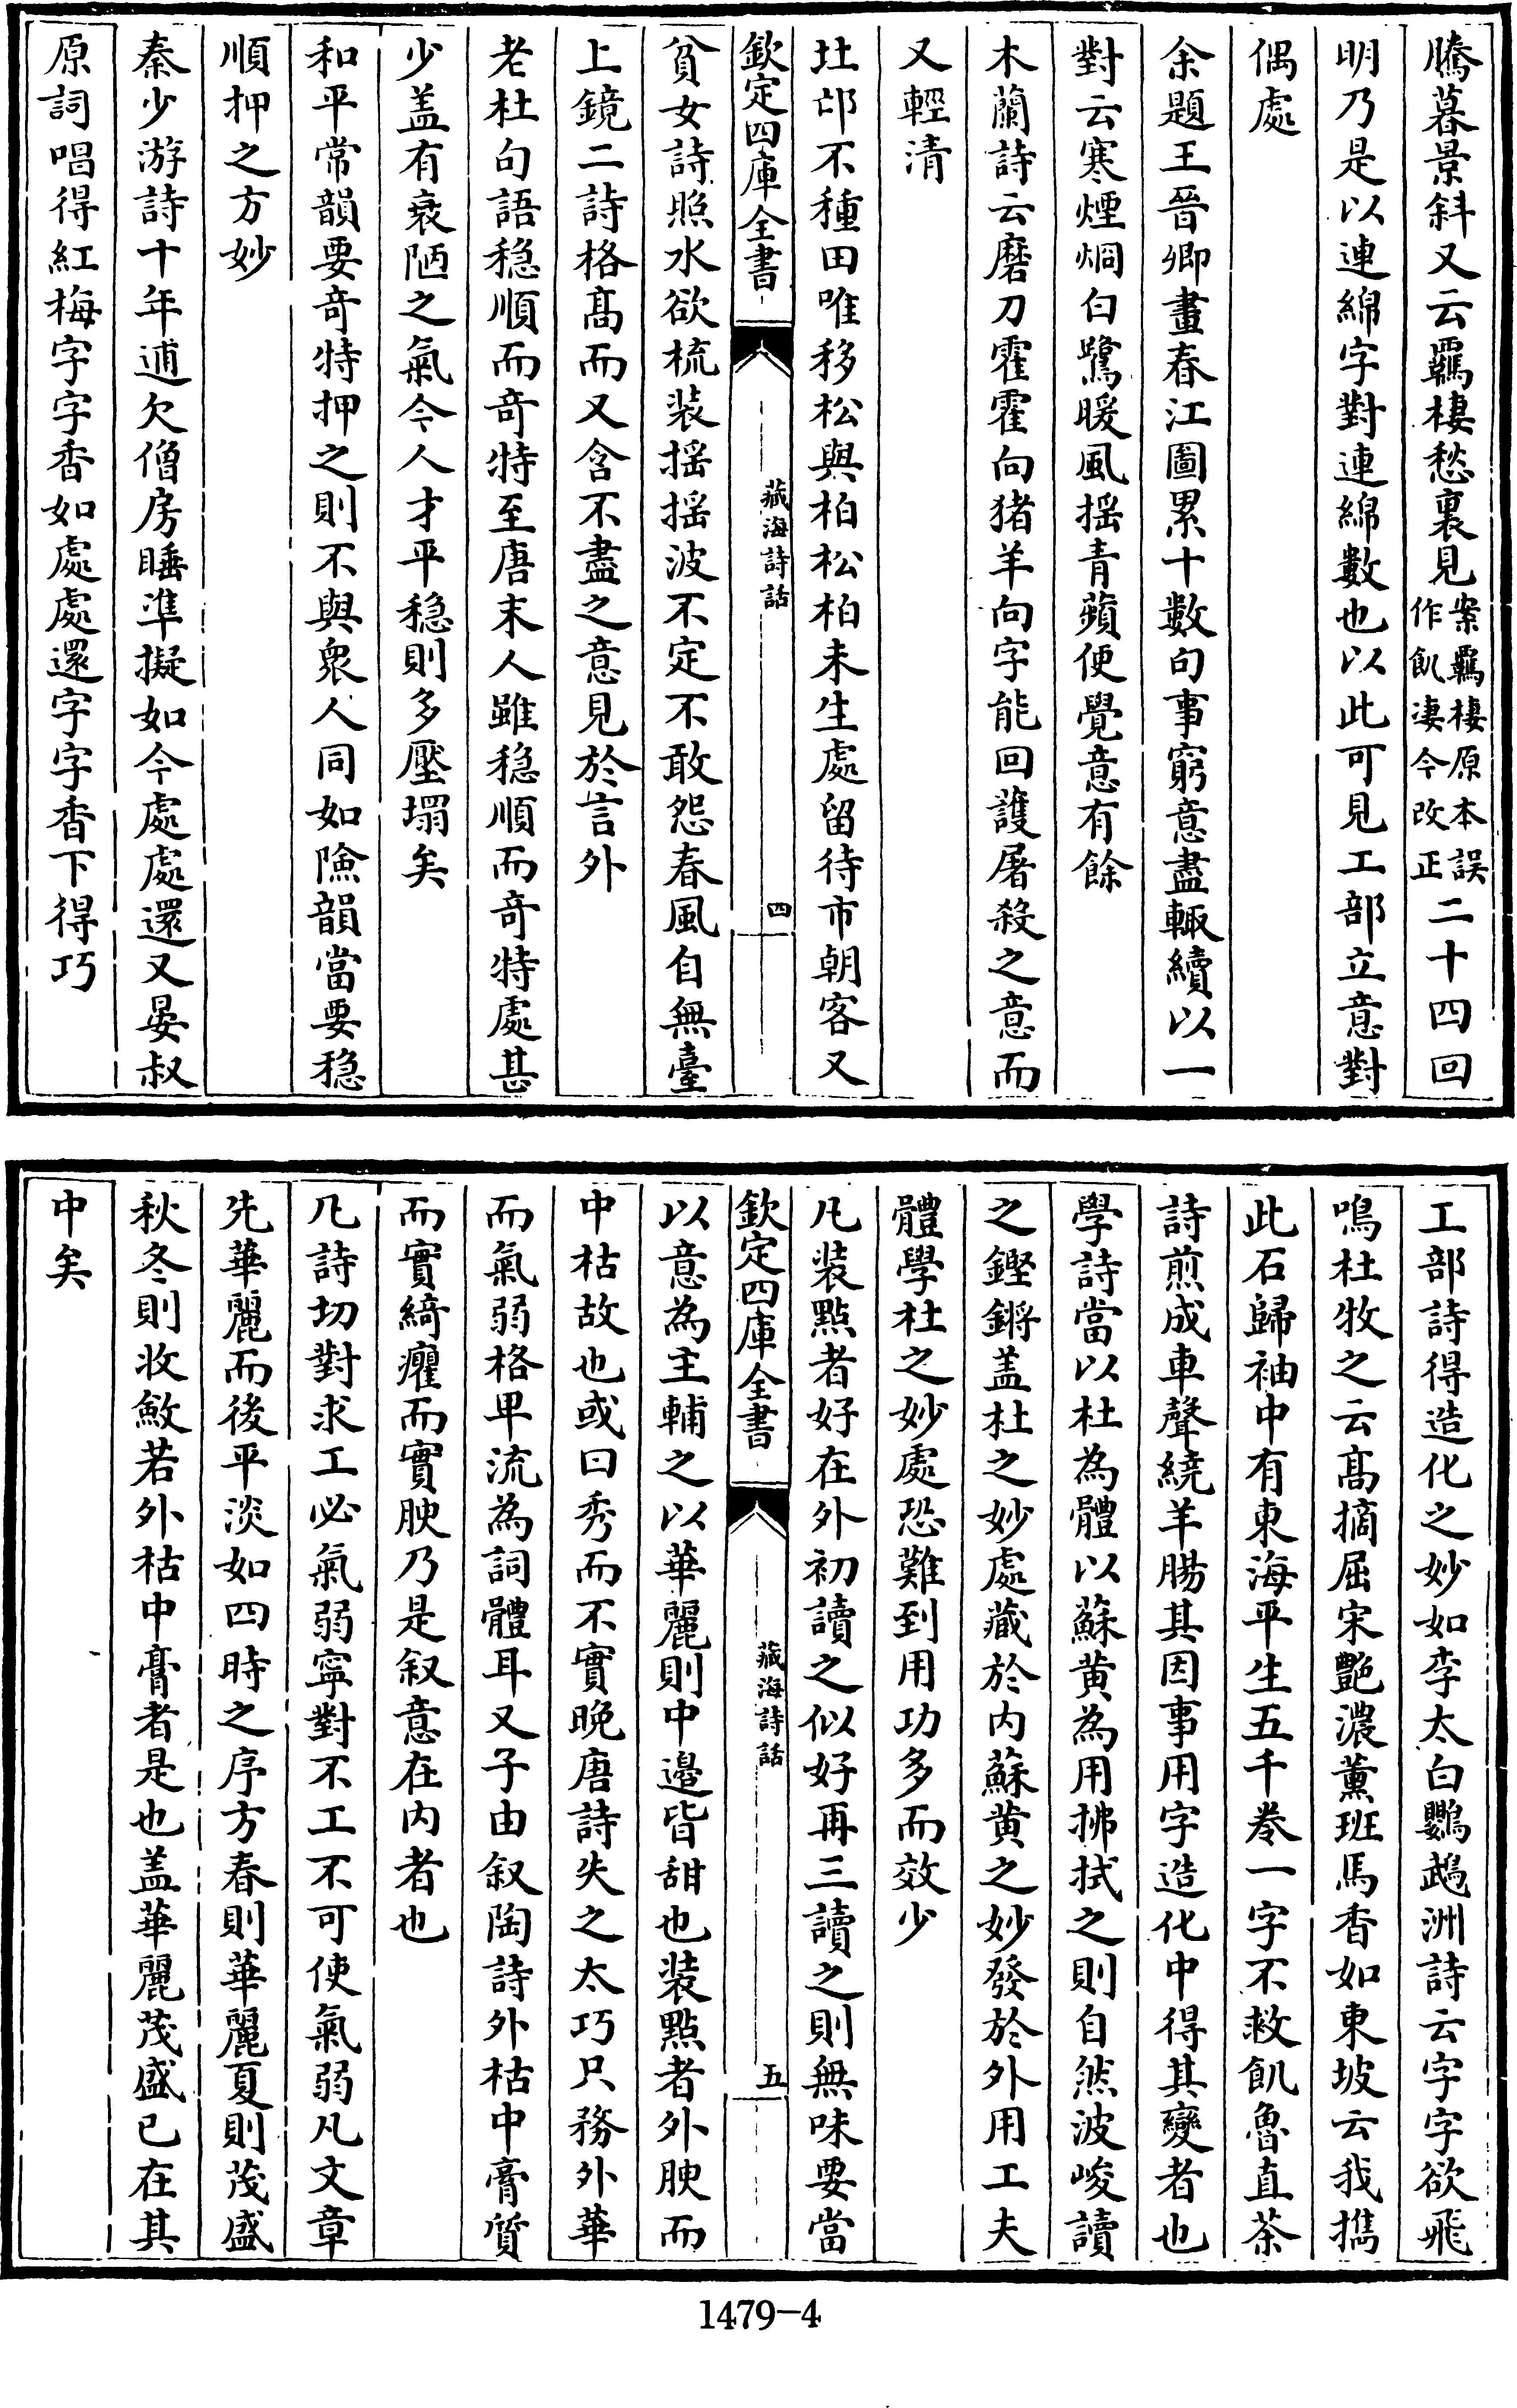 騰暮景斜又云羈棲愁裏見案羈棲原本誤作飢淒今改正二十四回
明乃是以連綿字對連綿數也以此可見工部立意對
偶處
余題王晉卿畫春江圖累十數句事窮意盡輙續以一
對云寒煙烱白鷺暖風揺青蘋便覺意有餘
木蘭詩云磨刀霍霍向猪羊向字能回護屠殺之意而
又輕清
壯邙不種田唯移松與柏松柏未生處留待市朝客又
欽定四庫全書
藏海詩話
四
貧女詩照水欲梳装揺揺波不定不敢怨春風自無臺
上鏡二詩格髙而又含不盡之意見於言外
老杜句語穏順而竒特至唐末人雖穏順而竒特處甚
少盖有衰陋之氣今人才平穏則多壓塌矣
和平常韻要竒特押之則不與衆人同如險韻當要穏
順押之方妙
秦少游詩十年逋欠僧房睡凖擬如今處處還又晏叔
原詞唱得紅梅字字香如處處還字字香下得巧
工部詩得造化之妙如李太白鸚鵡洲詩云字字欲飛
鳴杜牧之云髙摘屈宋艷濃薰班馬香如東坡云我擕
此石歸袖中有東海平生五千卷一字不救飢魯直茶
詩煎成車聲繞羊腸其因事用字造化中得其變者也
學詩當以杜為體以蘇黄為用拂拭之則自然波峻讀
之鏗鏘盖杜之妙處藏於内蘇黄之妙發於外用工夫
體學杜之妙處恐難到用功多而效少
凡装點者好在外初讀之似好再三讀之則無味要當
欽定四庫全書
藏海詩話
五
以意為主輔之以華麗則中邉皆甜也装點者外腴而
中枯故也或曰秀而不實晚唐詩失之太巧只務外華
而氣弱格卑流為詞體耳又子由叙陶詩外枯中膏質
而實綺癯而實腴乃是叙意在内者也
凡詩切對求工必氣弱寧對不工不可使氣弱凡文章
先華麗而後平淡如四時之序方春則華麗夏則茂盛
秋冬則收斂若外枯中膏者是也盖華麗茂盛已在其
中矣
1479-4